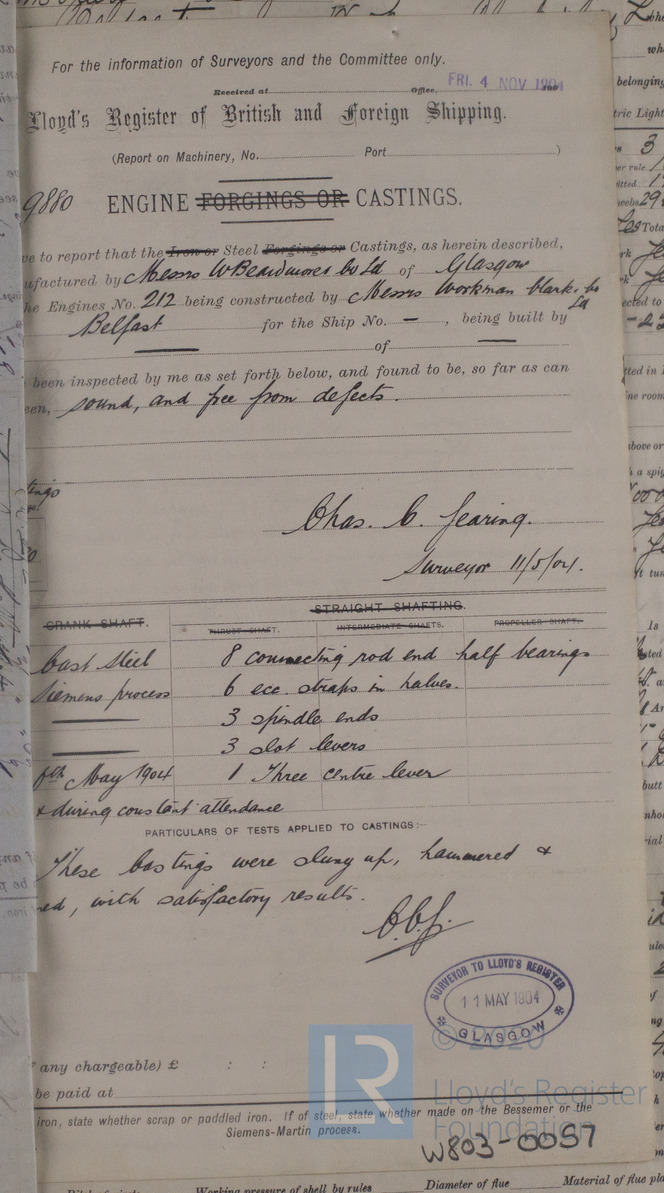 For the information of Surveyors and the Committee only.
Received at Office, FRI. 4 NOV 1904
Lloyd's Register of British and Foreign Shipping.
(Report on Machinery, No. Port )
9880 ENGINE FORGINGS OR CASTINGS.
ve to report that the Iron or Steel Forgings or Castings, as herein described,
ufactured by Messrs W Beardmore & Co Ld of Glasgow
he Engines No. 212 being constructed by Messrs Workman Clark & Co Ld
Belfast for the Ship No. — , being built by
— of —
been inspected by me as set forth below, and found to be, so far as can
een, sound, and free from defects.
tings
Chas. C. Gearing.
Surveyor 11/5/04.
STRAIGHT SHAFTING.
CRANK SHAFT. THRUST SHAFT. INTERMEDIATE SHAFTS. PROPELLER SHAFT.
Cast Steel 8 connecting rod end half bearings
Siemens process 6 ecc. straps in halves.
— 3 spindle ends
— 3 slot levers
May 1904 1 Three centre lever
& during constant attendance
PARTICULARS OF TESTS APPLIED TO CASTINGS:—
These Castings were slung up, hammered &
ned, with satisfactory results.
C.C.G.
SURVEYOR TO LLOYD'S REGISTER
11 MAY 1904
GLASGOW
© 2020
any chargeable) £ : :
be paid at
LR
Lloyd's Register
Foundation
iron, state whether scrap or puddled iron. If of steel, state whether made on the Bessemer or the
Siemens-Martin process.
W803-0057
Working pressure of shell by rules Diameter of flue Material of flue pla